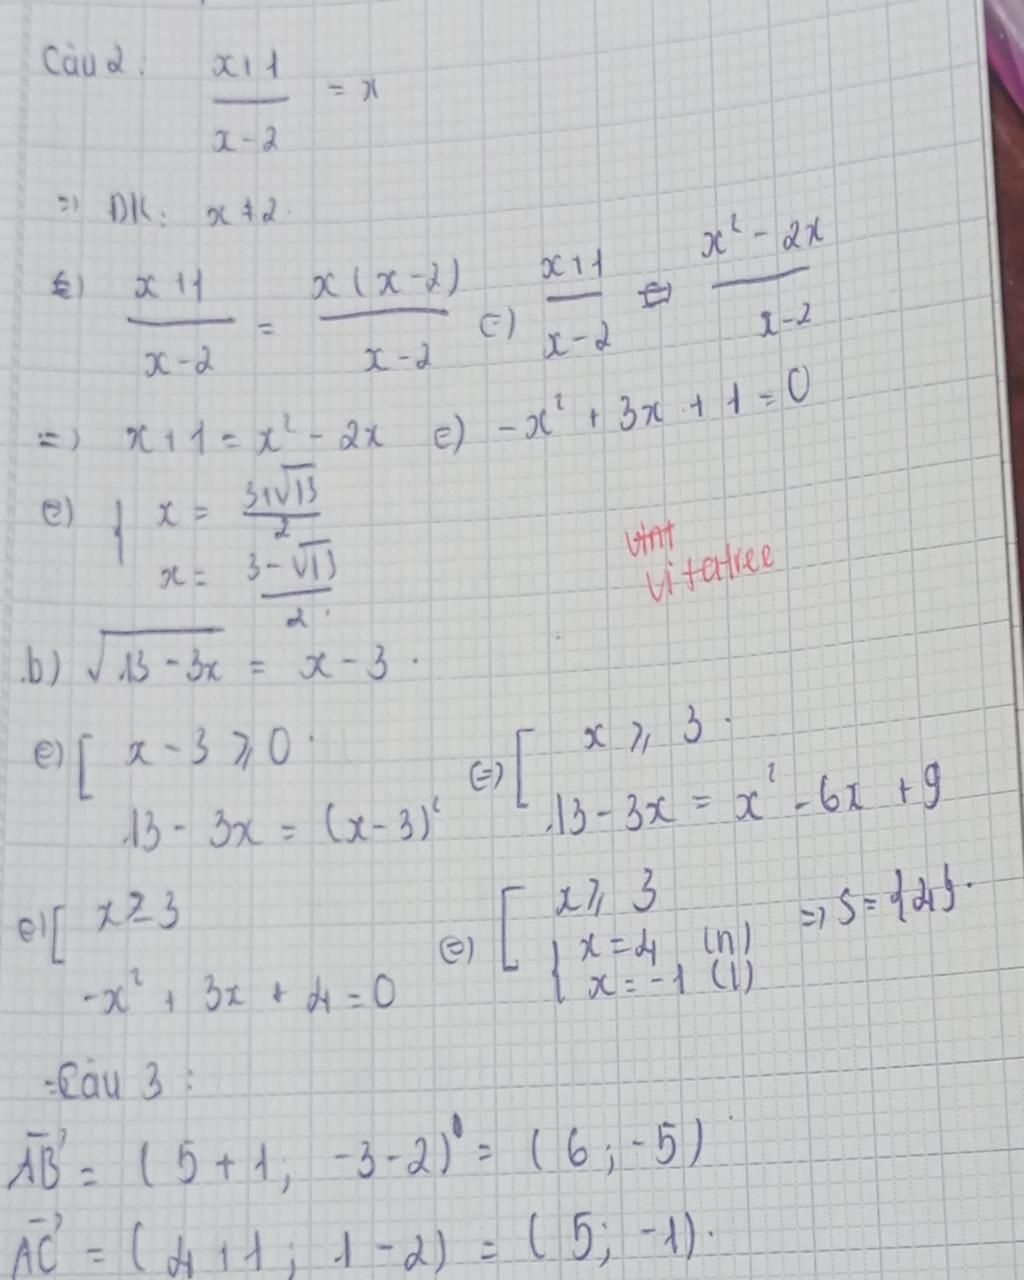 Câu 2: x+1 / x-2 = x
=> ĐK: x ≠ 2.
<=> x+1 / x-2 = x(x-2) / x-2 <=> x+1 / x-2 <=> x² - 2x / x-2
=> x+1 = x² - 2x <=> -x² + 3x + 1 = 0
<=> { x = 3+√13 / 2
x = 3-√13 / 2.
b) √13-3x = x - 3.
<=> [ x - 3 ⩾ 0 <=> [ x ⩾ 3.
13 - 3x = (x-3)² 13 - 3x = x² - 6x + 9
<=> [ x ≥ 3 <=> [ x ⩾ 3
-x² + 3x + 4 = 0 { x = 4 (n) => S = {4}.
x = -1 (l)
Câu 3:
AB→ = (5+1; -3-2) = (6; -5)
AC→ = (4+1; 1-2) = (5; -1).